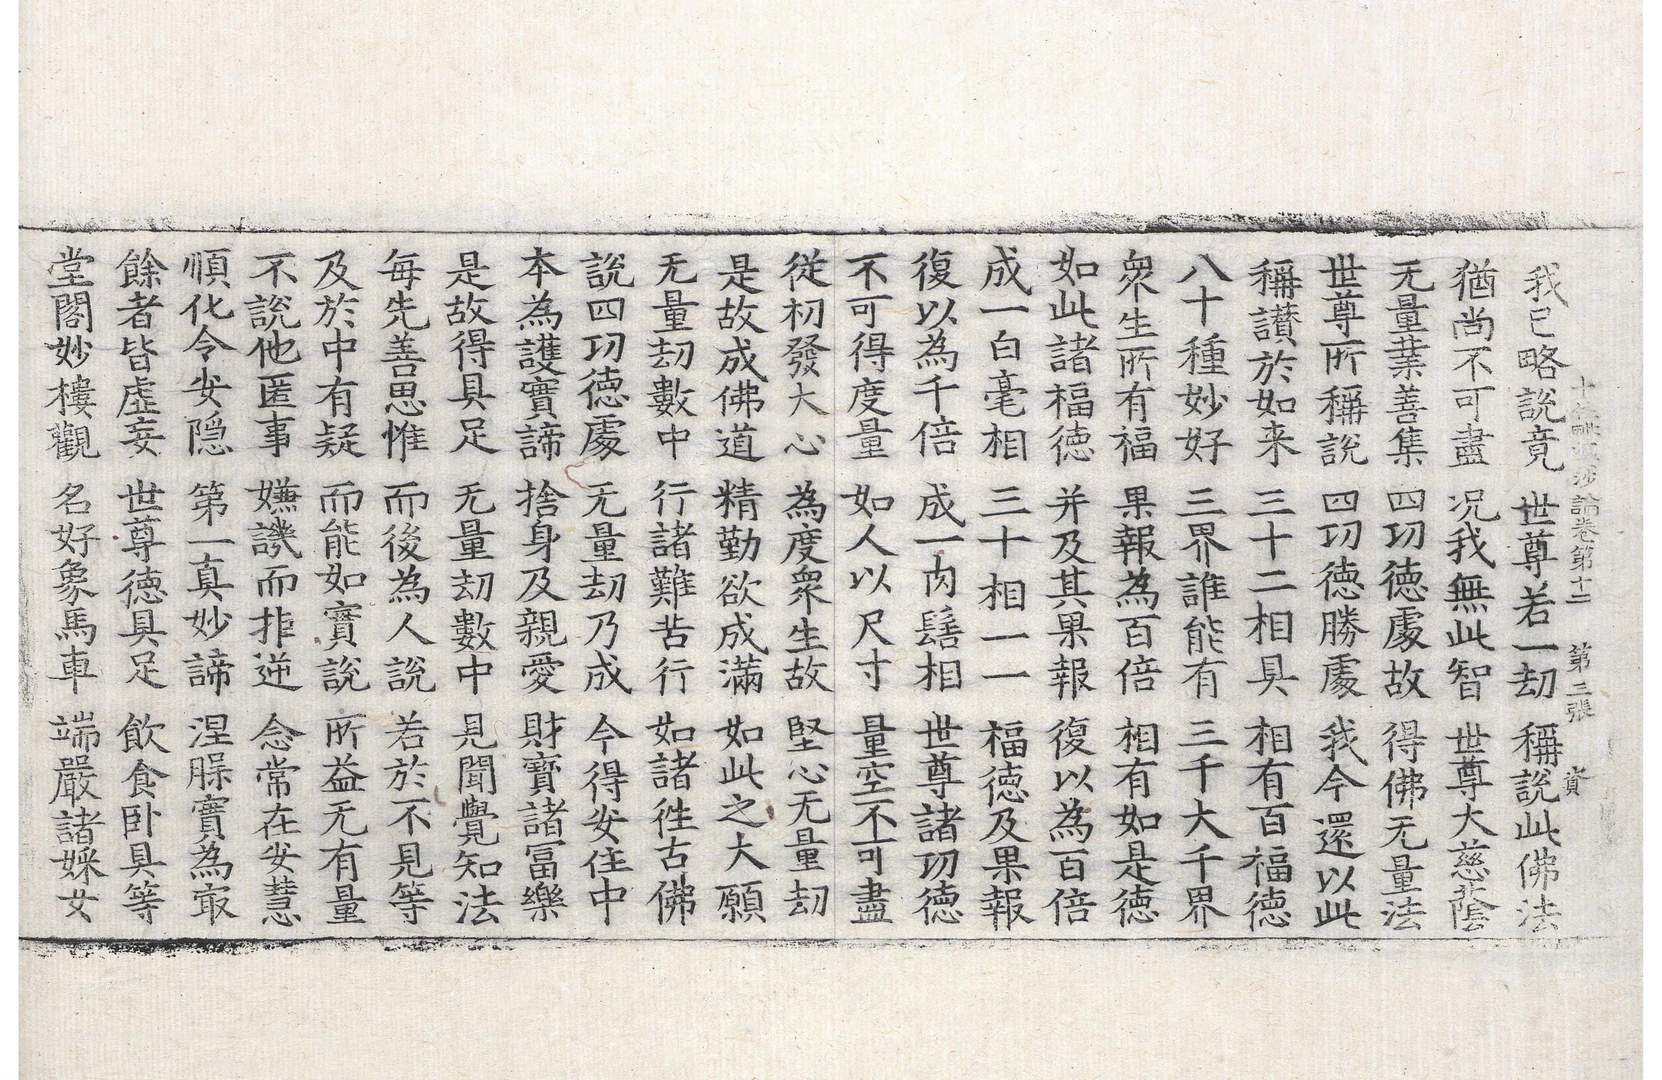 十住毗婆沙論卷第十二 第三張 賨
我已略說竟 世尊若一劫 稱說此佛法
猶尚不可盡 况我無此智 世尊大慈蔭
无量業善集 四㓛德處故 得佛无量法
世尊所稱說 四㓛德勝處 我今還以此
稱讃於如来 三十二相具 相有百福德
八十種妙好 三界誰能有 三千大千界
衆生所有福 果報為百倍 相有如是德
如此諸福德 并及其果報 復以為百倍
成一白毫相 三十相一一 福德及果報
復以為千倍 成一肉髻相 世尊諸㓛德
不可得度量 如人以尺寸 量空不可盡
從初發大心 為度衆生故 堅心无量劫
是故成佛道 精勤欲成滿 如此之大願
无量劫數中 行諸難苦行 如諸徃古佛
說四㓛德處 无量劫乃成 今得安住中
本為護實諦 捨身及親愛 財寶諸冨樂
是故得具足 无量劫數中 見聞覺知法
每先善思惟 而後為人說 若於不見等
及於中有疑 而能如實說 所益无有量
不說他匿事 嫌譏而拒逆 念常在安慧
順化令安隠 第一真妙諦 涅槃實為㝡
餘者皆虛妄 世尊德具足 飲食卧具等
堂閣妙樓觀 名好象馬車 端嚴諸婇女